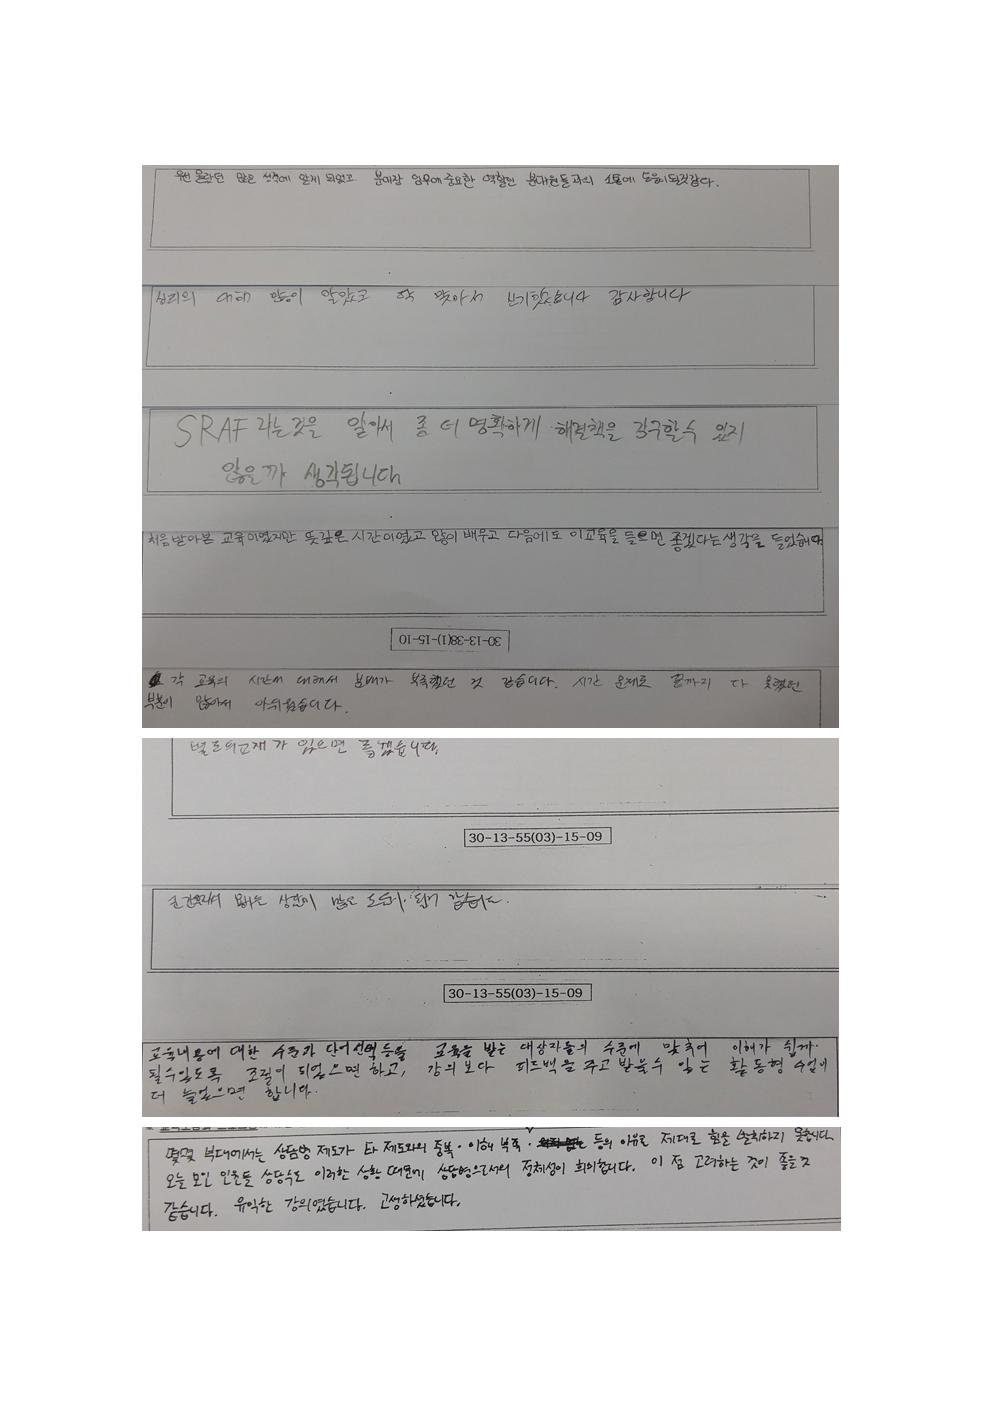 몰랐던 많은 알게 되었고 분대장 임무에 중요한 역할인 분대원들과의 소통에 도움이 된것같다.
심리의 대해 많이 알았고 딱 맞아서 신기했습니다 감사합니다
SRAF 라는것을 알아서 좀 더 명확하게 해결책을 강구할수 있지
않을까 생각됩니다
처음받아본 교육이였지만 뜻깊은 시간이였고 많이 배우고 다음에도 이교육을 들으면 좋겠다는생각을 들었습니다
30-13-38(1)-15-10
각 교육의 시간에 대해서 분배가 부족했던 것 같습니다. 시간 문제로 끝까지 다 못했던
부분이 많아서 아쉬웠습니다.
별도의교재가 있으면 좋겠습니다.
30-13-55(03)-15-09
30-13-55(03)-15-09
교육내용에 대한 수준과 단어선택등을 교육을 받는 대상자들의 수준에 맞추어 이해가 쉽게
될수있도록 조절이 되었으면 하고, 강의보다 피드백을 주고 받을수 있는 활동형 수업이
더 늘었으면 합니다.
몇몇 부대에서는 상담병 제도가 타 제도와의 중복·이해 부족· 등의 이유로 제대로 힘을 발휘하지 못합니다.
오늘 모인 인원들 상당수도 이러한 상황 때문에 상담병으로서의 정체성이 희미합니다. 이 점 고려하는 것이 좋을것
같습니다. 유익한 강의였습니다. 고생하셨습니다.